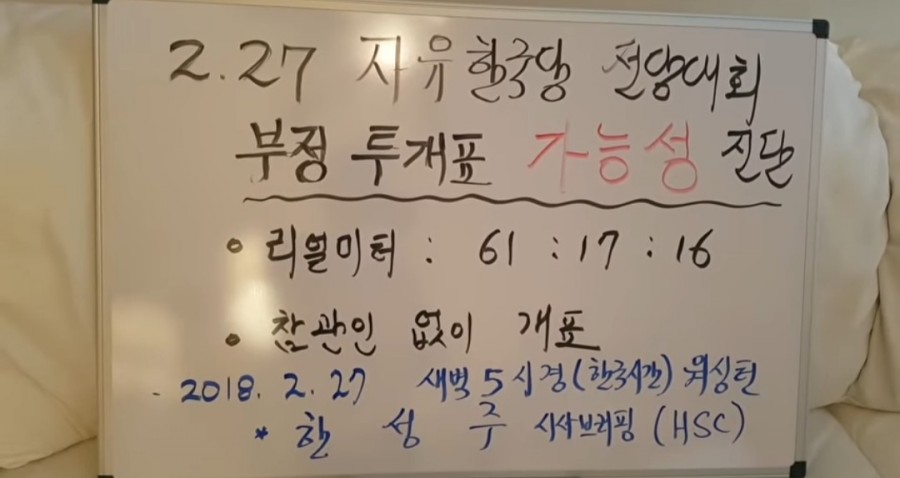 2.27 자유한국당 전당대회
부정 투개표 가능성 진단
• 리얼미터 : 61 : 17 : 16
• 참관인 없이 개표
- 2018. 2. 27 새벽 5시경(한국시간) 워싱턴
* 한 성 주 시사브리핑 (HSC)